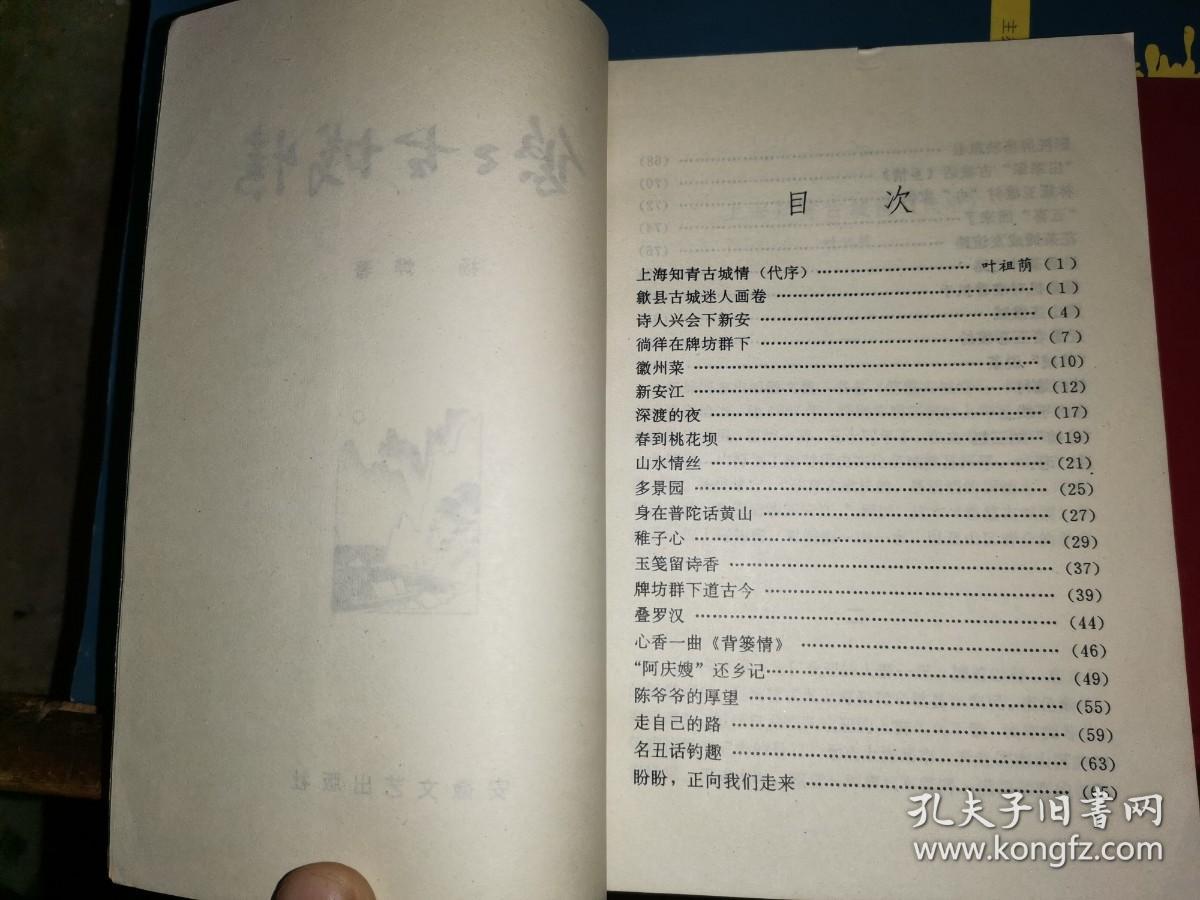 目 次
上海知青古城情（代序）……………………叶祖荫（1）
歙县古城迷人画卷……………………（1）
诗人兴会下新安……………………（4）
徜徉在牌坊群下……………………（7）
徽州菜……………………（10）
新安江……………………（12）
深渡的夜……………………（17）
春到桃花坝……………………（19）
山水情丝……………………（21）
多景园……………………（25）
身在普陀话黄山……………………（27）
稚子心……………………（29）
玉笺留诗香……………………（37）
牌坊群下道古今……………………（39）
叠罗汉……………………（44）
心香一曲《背篓情》……………………（46）
“阿庆嫂”还乡记……………………（49）
陈爷爷的厚望……………………（55）
走自己的路……………………（59）
名丑话钓趣……………………（63）
盼盼，正向我们走来……………………（65）
安徽文艺出版社
孔夫子旧书网
www.kongfz.com